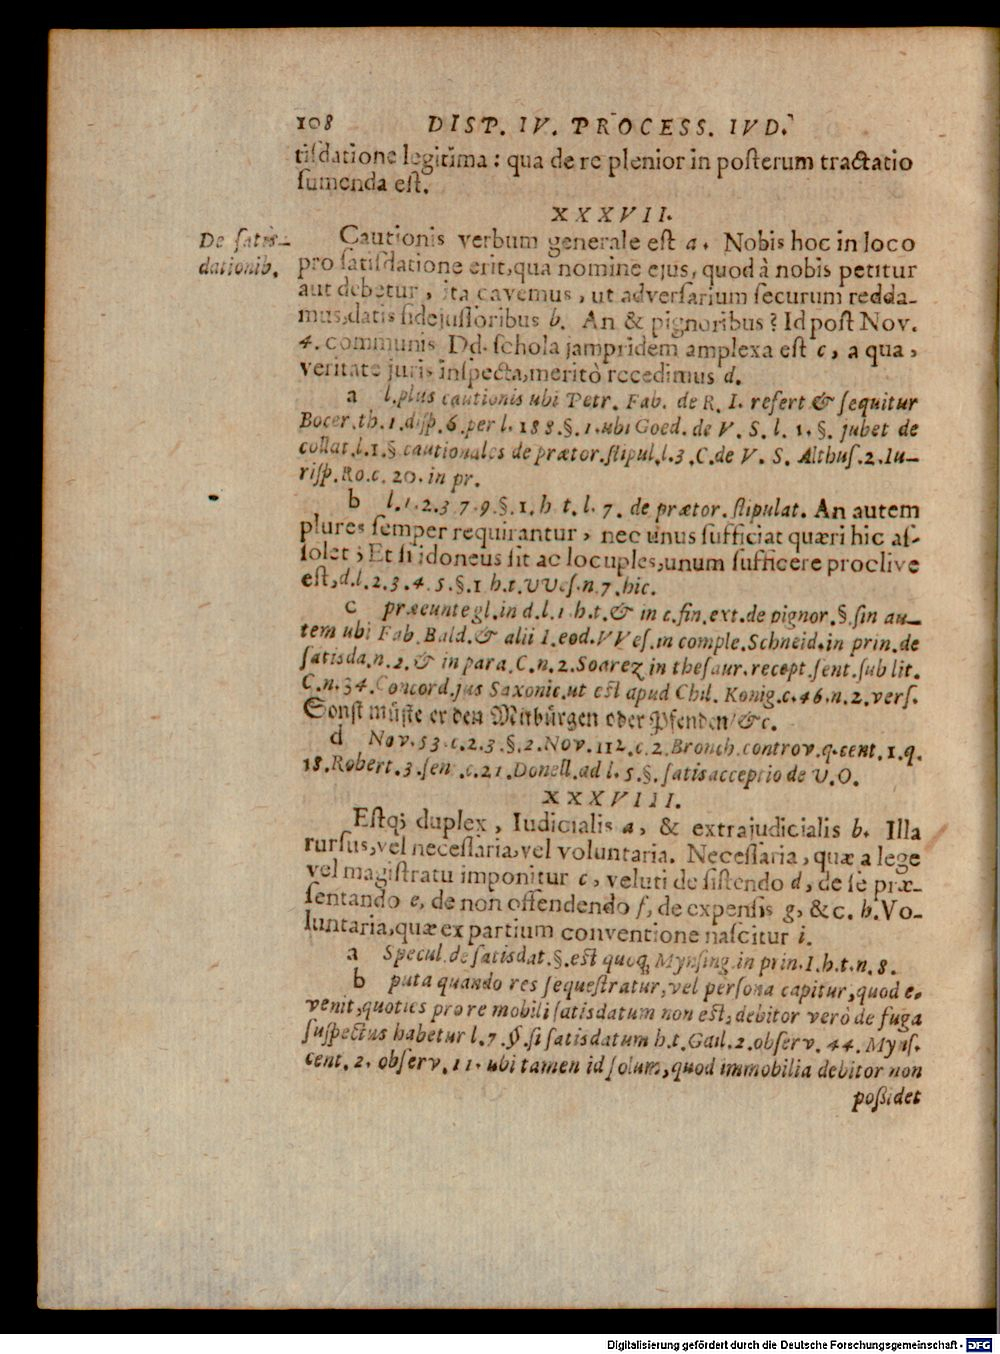 108 DISP. IV. PROCESS. IVD.
tiſdatione legitima : qua de re plenior in poſterum tractatio
ſumenda eſt.
XXXVII.
De ſatis-
dationib.
Cautionis verbum generale eſt a. Nobis hoc in loco
pro ſatiſdatione erit, qua nomine ejus, quod à nobis petitur
aut debetur, ita cavemus, ut adverſarium ſecurum redda-
mus, datis fidejuſſoribus b. An & pignoribus? Id poſt Nov.
4. communis Dd. ſchola jampridem amplexa eſt c, a qua,
veritate juris inſpecta, meritò recedimus d.
a l. plus cautionis ubi Petr. Fab. de R. I. refert & ſequitur
Bocer. th. 1. diſp. 6. per l. 188. §. 1. ubi Goed. de V. S. l. 1. §. jubet de
collat. l. 1. § cautionales de prætor. ſtipul. l. 3. C. de V. S. Althuſ. 2. Iu-
riſp. Ro. c. 20. in pr.
b l. 1. 2. 3 7. 9. §. 1. h t. l. 7. de prætor. ſtipulat. An autem
plures ſemper requirantur, nec unus ſufficiat quæri hic aſ-
ſolet; Et ſi idoneus ſit ac locuples, unum ſufficere proclive
eſt, d. l. 2. 3. 4. 5. §. 1 h. t. VVeſ. n. 7. hic.
c præeunte gl. in d. l. 1. h. t. & in c. fin. ext. de pignor. §. ſin au-
tem ubi Fab. Bald. & alii I. eod. VVeſ. in comple. Schneid. in prin. de
ſatisda. n. 2. & in para. C. n. 2. Soarez in theſaur. recept. ſent. ſub lit.
C. n. 34. Concord. jus Saxonic. ut eſt apud Chil. Konig. c. 46. n. 2. verſ.
Sonſt müſte er den Mitbürgen oder Pfenden / &c.
d Nov. 53. c. 2. 3. §. 2. Nov. 112. c. 2. Bronch. controv. q. cent. 1. q.
18. Robert. 3. ſen. c. 21. Donell. ad l. 5. §. ſatisacceptio de V. O.
XXXVIII.
Eſtq; duplex, Iudicialis a, & extrajudicialis b. Illa
rurſus, vel neceſſaria, vel voluntaria. Neceſſaria, quæ a lege
vel magiſtratu imponitur c, veluti de ſiſtendo d, de ſe præ-
ſentando e, de non offendendo f, de expenſis g, &c. h. Vo-
luntaria, quæ ex partium conventione naſcitur i.
a Specul. de ſatisdat. §. eſt quoq; Mynſing. in prin. I. h. t. n. 8.
b puta quando res ſequeſtratur, vel perſona capitur, quod e-
venit, quoties pro re mobili ſatisdatum non eſt, debitor verò de fuga
ſuſpectus habetur l. 7. §. ſi ſatisdatum h. t. Gail. 2. obſerv. 44. Mynſ.
cent. 2. obſerv. 11. ubi tamen id ſolum, quod immobilia debitor non
poßidet
Digitalisierung gefördert durch die Deutsche Forschungsgemeinschaft - DFG